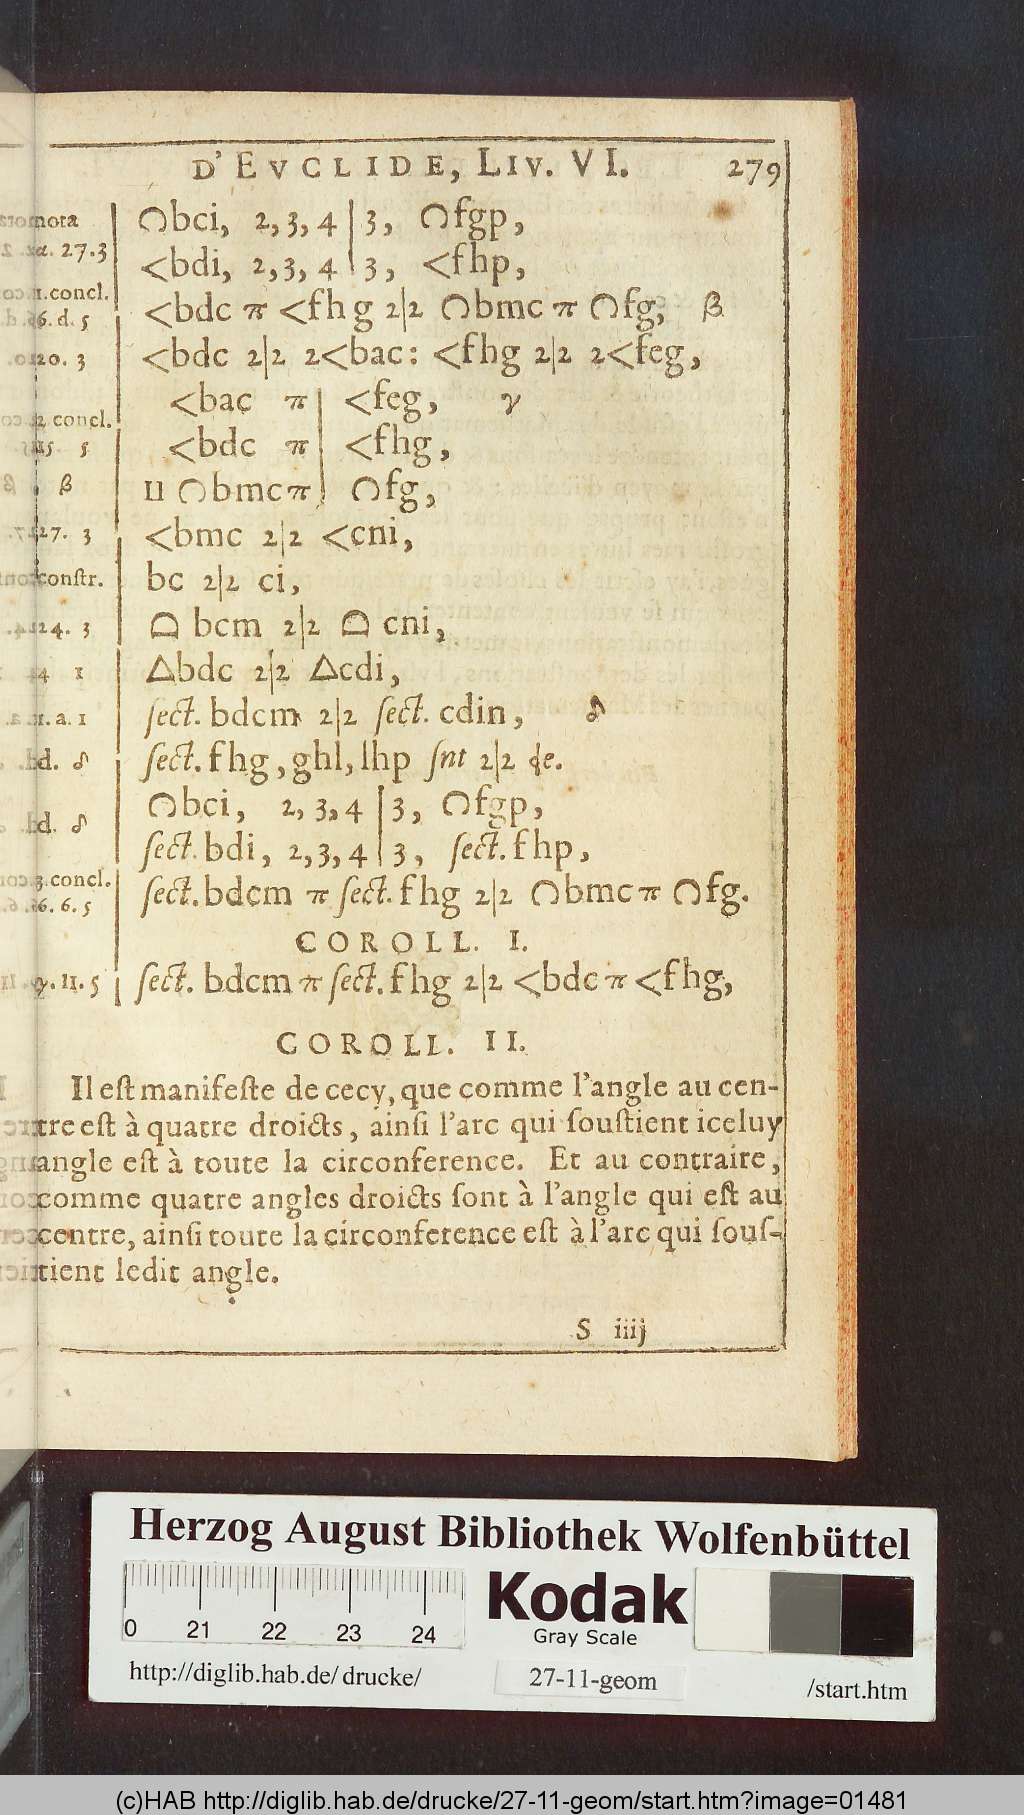 D' EVCLIDE, LIV. VI. 279
nota | ◠bci, 2,3,4 | 3, ◠fgp,
a. 27.3 | <bdi, 2,3,4 | 3, <fhp,
1.concl. | <bdc π <fhg 2|2 ◠bmc π ◠fg, β
6. d. 5
20. 3 | <bdc 2|2 2<bac: <fhg 2|2 2<feg,
<bac π | <feg, γ
2 concl.
15 5 | <bdc π | <fhg,
β | II ◠bmc π | ◠fg,
27. 3 | <bmc 2|2 <cni,
constr. | bc 2|2 ci,
24. 3 | ⌓ bcm 2|2 ⌓ cni,
4 1 | △bdc 2|2 △cdi,
1. a. 1 | ſect. bdcm 2|2 ſect. cdin, δ
d. δ | ſect. fhg, ghl, lhp ſnt 2|2 de.
◠bci, 2,3,4 | 3, ◠fgp,
d. δ | ſect. bdi, 2,3,4 | 3, ſect. fhp,
3.concl. | ſect. bdcm π ſect. fhg 2|2 ◠bmc π ◠fg.
6. 6. 5
COROLL. I.
γ. 11. 5 | ſect. bdcm π ſect. fhg 2|2 <bdc π <fhg,
COROLL. II.
Il eſt manifeſte de cecy, que comme l'angle au cen-
tre eſt à quatre droicts, ainſi l'arc qui ſouſtient iceluy
angle eſt à toute la circonference. Et au contraire,
comme quatre angles droicts ſont à l'angle qui eſt au
centre, ainſi toute la circonference eſt à l'arc qui ſouſ-
tient ledit angle.
S iiij
Herzog August Bibliothek Wolfenbüttel
0 21 22 23 24
Kodak
Gray Scale
http://diglib.hab.de/drucke/ 27-11-geom /start.htm
(c)HAB http://diglib.hab.de/drucke/27-11-geom/start.htm?image=01481